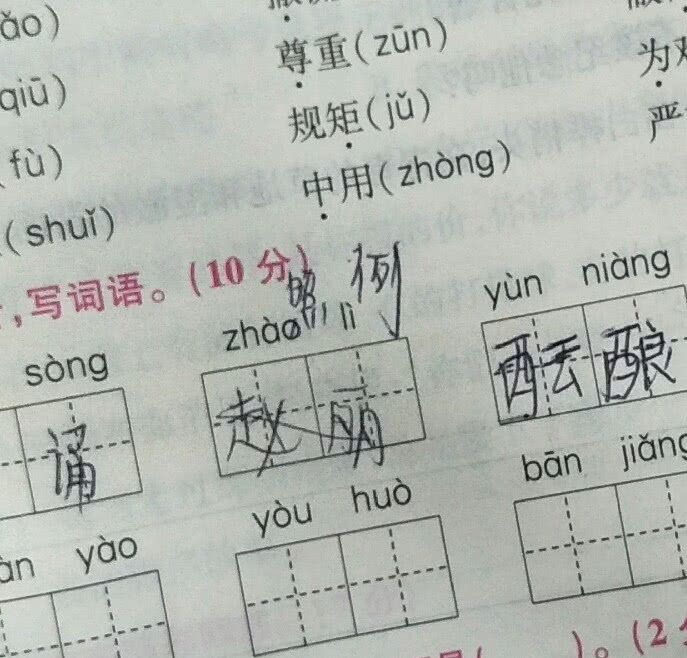 ǎo)
尊重(zūn)
为
qiū)
规矩(jǔ)
严
fù)
中用(zhòng)
(shuǐ)
,写词语。(10 分)
照例
sòng
zhào lì
yùn niàng
诵
赵丽
酝酿
àn yào
yòu huò
bān jiǎng
)。(2